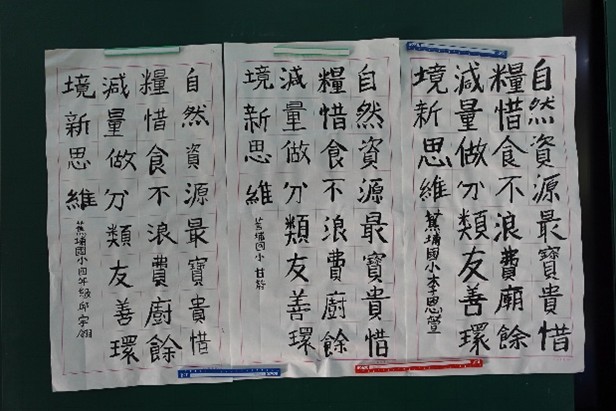 自然資源最寶貴惜
糧惜食不浪費廟餘
減量做分類友善環
境新思維
蕉埔國小李思萱
自然資源最寶貴惜
糧惜食不浪費廚餘
減量做分類友善環
境新思維
埔國小 甘
自然資源最寶貴惜
糧惜食不浪費廚餘
減量做分類友善環
境新思維
蕉埔國小四年級邱宇翎